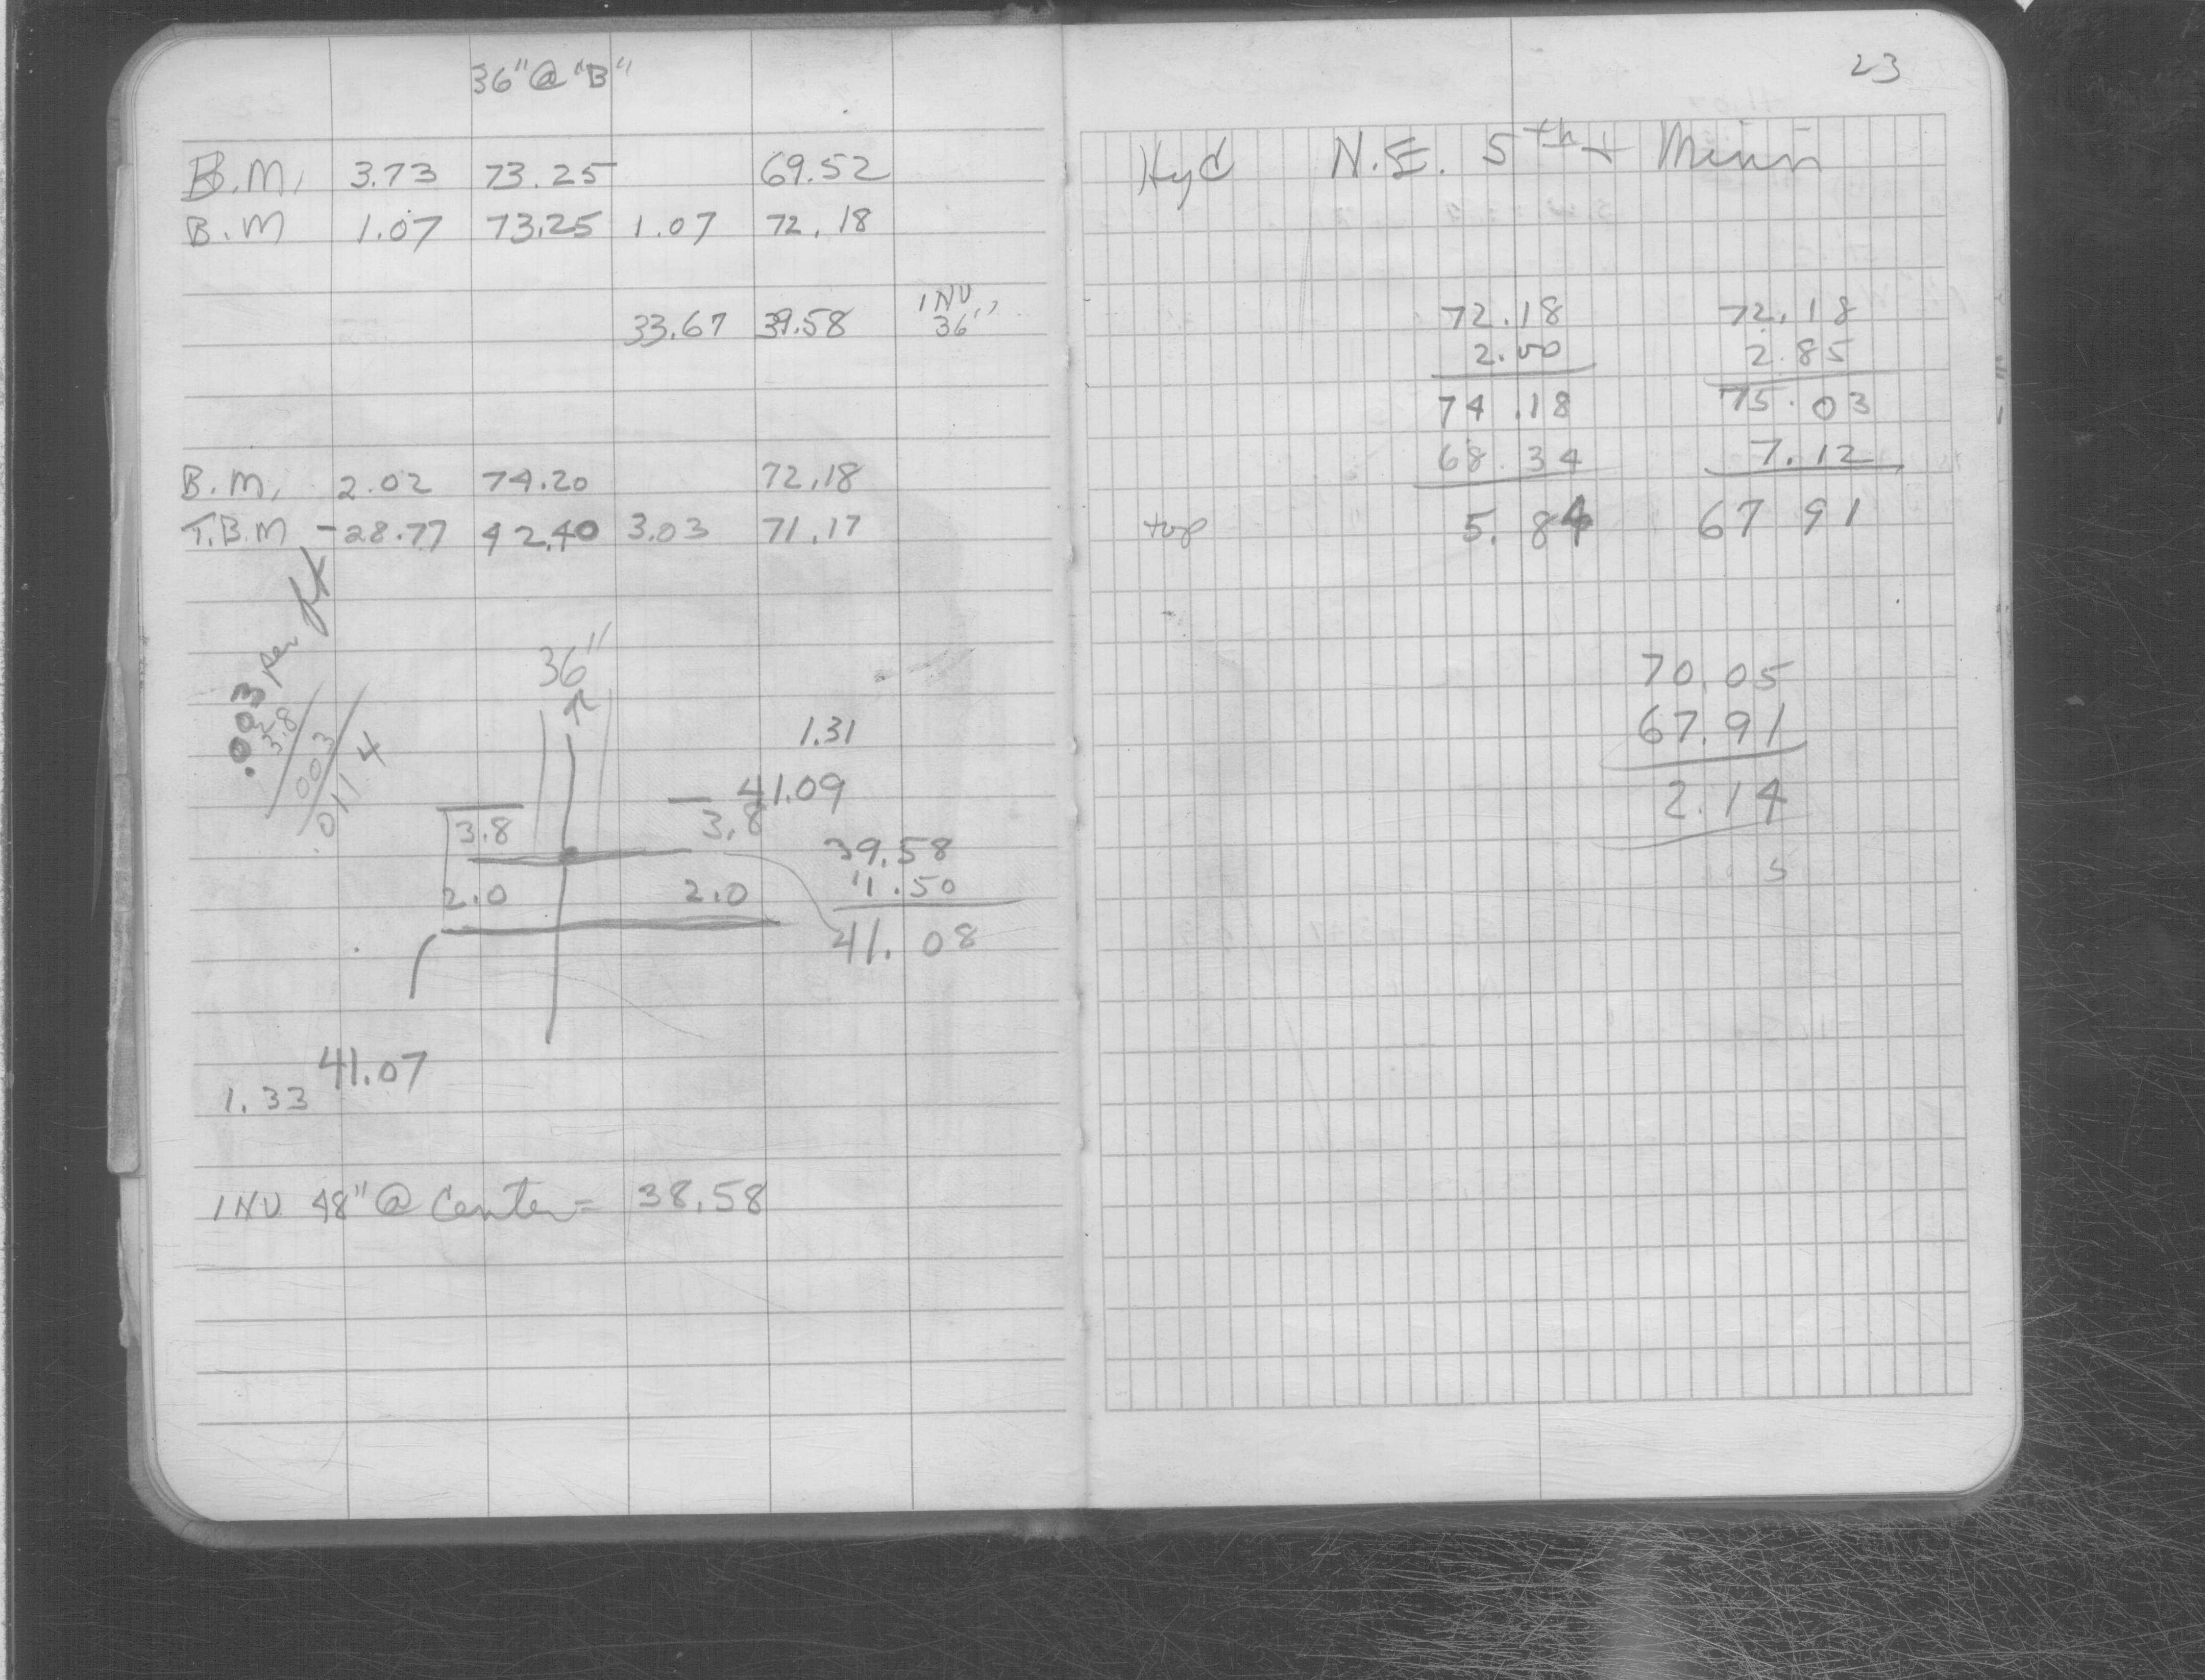 36" @ "B"
B.M. 3.73 73.25 69.52
B.M 1.07 73.25 1.07 72.18
33.67 39.58 INV. 36"
B.M. 2.02 74.20 72.18
T.B.M -28.77 42.40 3.03 71.17
.003 per ft
3.8
.003
.0114
36"
1.31
41.09
3.8 3.8
39.58
1.50
2.0 2.0
41.08
41.07
1.33
INV 48" @ Center = 38.58
23
Hyd N.E. 5th + Minn
72.18 72.18
2.00 2.85
74.18 75.03
68.34 7.12
top 5.84 67 91
70.05
67.91
2.14
5